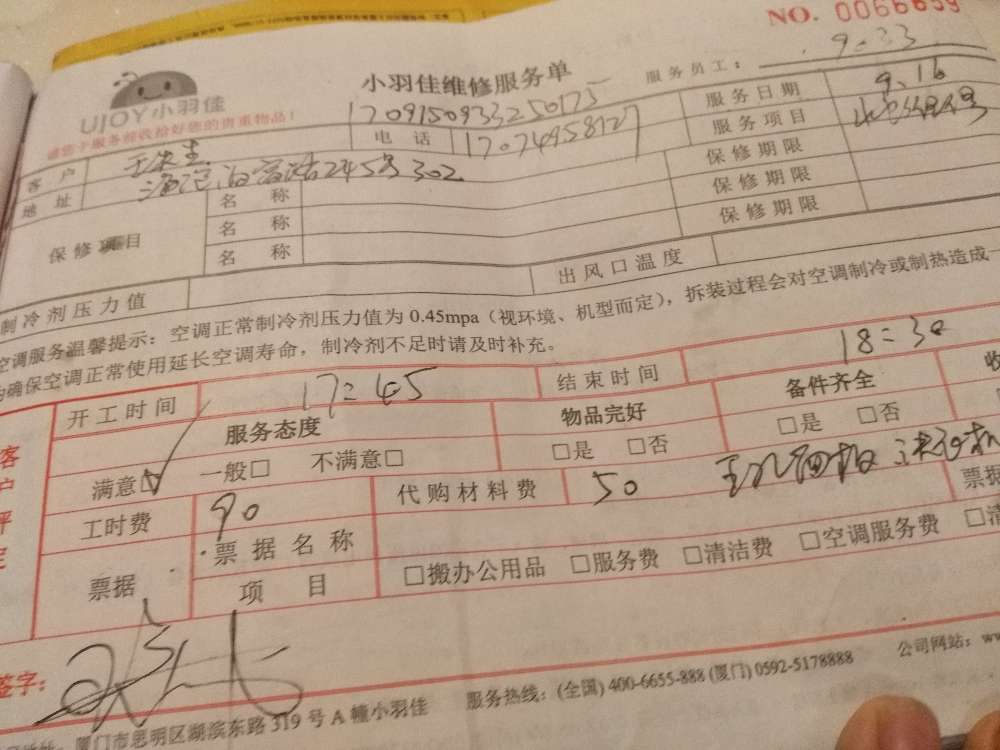 NO. 0066659
UJOY小羽佳
小羽佳维修服务单
服务员工：
9:33
请您于服务前收拾好您的贵重物品！
1709150933250173
服务日期 9.16
客户
电话 17074958127
服务项目
地址 245号302
保修期限
保修项目
名称
保修期限
名称
保修期限
名称
制冷剂压力值
出风口温度
空调服务温馨提示：空调正常制冷剂压力值为0.45mpa（视环境、机型而定），拆装过程会对空调制冷或制热造成一
确保空调正常使用延长空调寿命，制冷剂不足时请及时补充。
开工时间 17:45 结束时间 18:30
服务态度 物品完好 备件齐全
满意☑ 一般□ 不满意□ □是 □否 □是 □否
工时费 90 代购材料费 50
票据
票据名称
票据
项目 □搬办公用品 □服务费 □清洁费 □空调服务费
签字：
服务热线：(全国) 400-6655-888 (厦门) 0592-5178888 公司网站：
厦门市思明区湖滨东路319号A幢小羽佳